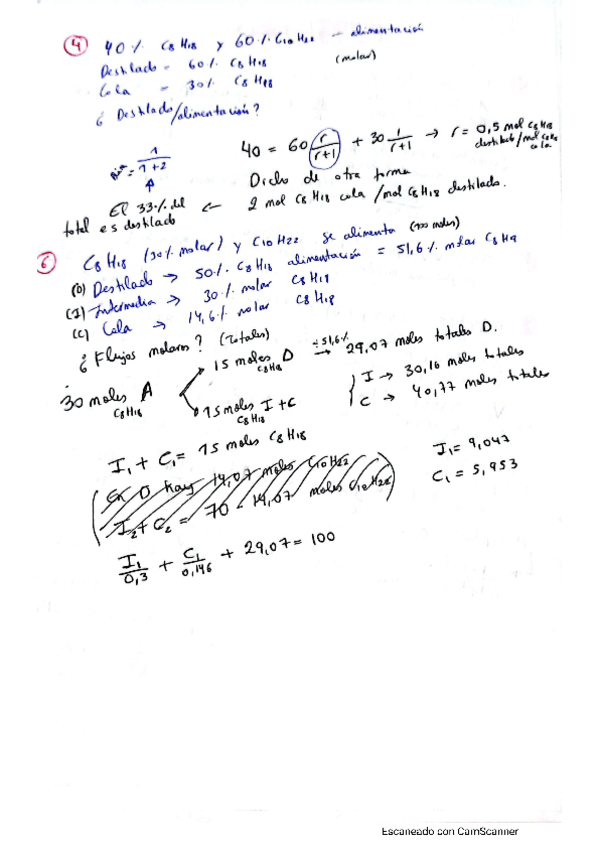 ④ 40% C8H18 y 60% C10H22 – alimentación
Destilado – 60% C8H18 (molar)
Cola – 30% C8H18
¿Destilado/alimentación?
40 = 60 r/(r+1) + 30 1/(r+1) → r = 0,5 mol C8H18
destilado/mol C8H18
cola
= 1/(1+2)
Dicho de otra forma
El 33% del ← 2 mol C8H18 cola/mol C8H18 destilado.
total es destilado
⑥ C8H18 (30% molar) y C10H22 se alimenta (100 moles)
(D) Destilado → 50% C8H18 alimentación = 51,6% molar C8H
(I) Intermedia → 30% molar C8H18
(C) Cola → 14,6% molar C8H18
¿Flujos molares? (Totales)
30 moles A
C8H18
15 moles D
C8H18
÷51,6%
→ 29,07 moles totales D.
15 moles I+C
C8H18
I → 30,16 moles totales
C → 40,77 moles totales
I1 + C1 = 15 moles C8H18
I1 = 9,047
C1 = 5,953
(En D hay 14,07 moles C10H22
I2+C2 = 70 - 14,07 moles C10H22)
I1/0,3 + C1/0,146 + 29,07 = 100
Escaneado con CamScanner